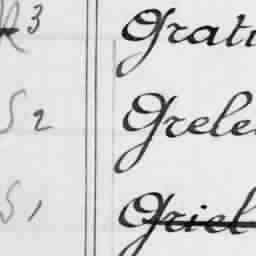 R 3 Grati
S 2 Grele
S 1 Griel